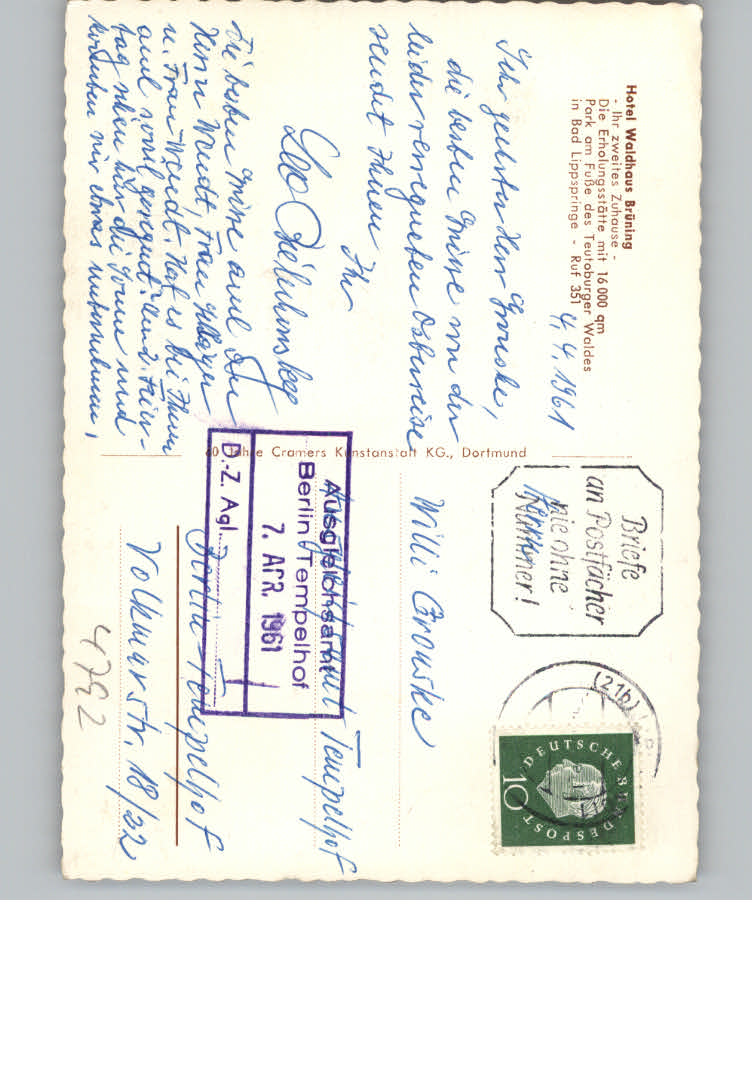 Hotel Waldhaus Brüning
- Ihr zweites Zuhause -
Die Erholungsstätte mit 16 000 qm
Park am Fuße des Teutoburger Waldes
in Bad Lippspringe - Ruf 351
4. 4. 1961
Ihr geehrter Herr Grouske,
die besten Grüsse von der
leider verregneten Osterreise
sendet Ihnen
Ihr
Leo
Die besten Grüsse auch an
Herrn Wendt, Frau
u. Frau Wendt. Hat es bei Ihnen
auch wohl geregnet.
tag schien hier die Sonne und
wir etwas unternehmen.
60 Jahre Cramers Kunstanstalt KG., Dortmund
Briefe
an Postfächer
nie ohne
Nummer!
(21b)
DEUTSCHE BUNDESPOST
10
Herrn
Willi Grouske
Tempelhof
Berlin-Tempelhof
Volkmarstr. 18/22
Ausgleichsamt
Berlin Tempelhof
7. APR. 1961
D.-Z. Agl.
4792